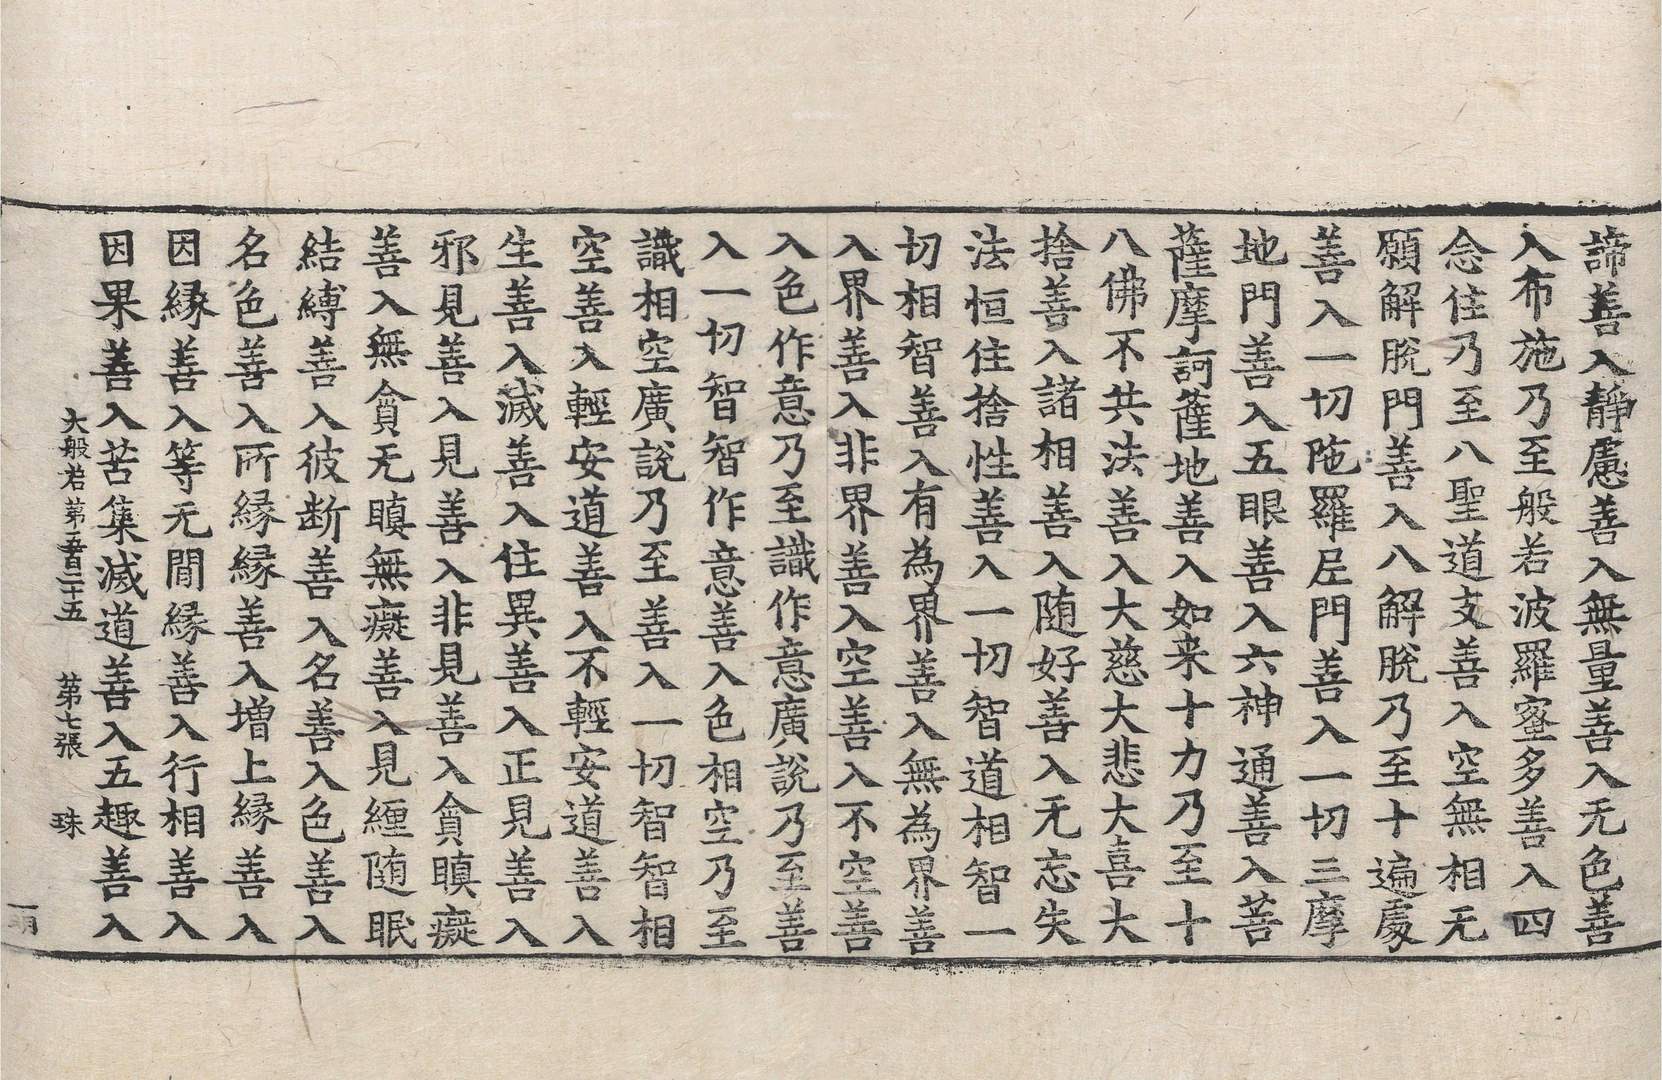 諦善入靜慮善入無量善入无色善
入布施乃至般若波羅蜜多善入四
念住乃至八聖道支善入空無相无
願解脫門善入八解脫乃至十遍處
善入一切陁羅尼門善入一切三摩
地門善入五眼善入六神通善入菩
薩摩訶薩地善入如来十力乃至十
八佛不共法善入大慈大悲大喜大
捨善入諸相善入随好善入无忘失
法恒住捨性善入一切智道相智一
切相智善入有為界善入無為界善
入界善入非界善入空善入不空善
入色作意乃至識作意廣說乃至善
入一切智智作意善入色相空乃至
識相空廣說乃至善入一切智智相
空善入輕安道善入不輕安道善入
生善入滅善入住異善入正見善入
邪見善入見善入非見善入貪瞋癡
善入無貪无瞋無癡善入見纏随眠
結縛善入彼断善入名善入色善入
名色善入所縁縁善入増上縁善入
因縁善入等无間縁善入行相善入
因果善入苦集滅道善入五趣善入
大般若第五百二十五 第七張 珠